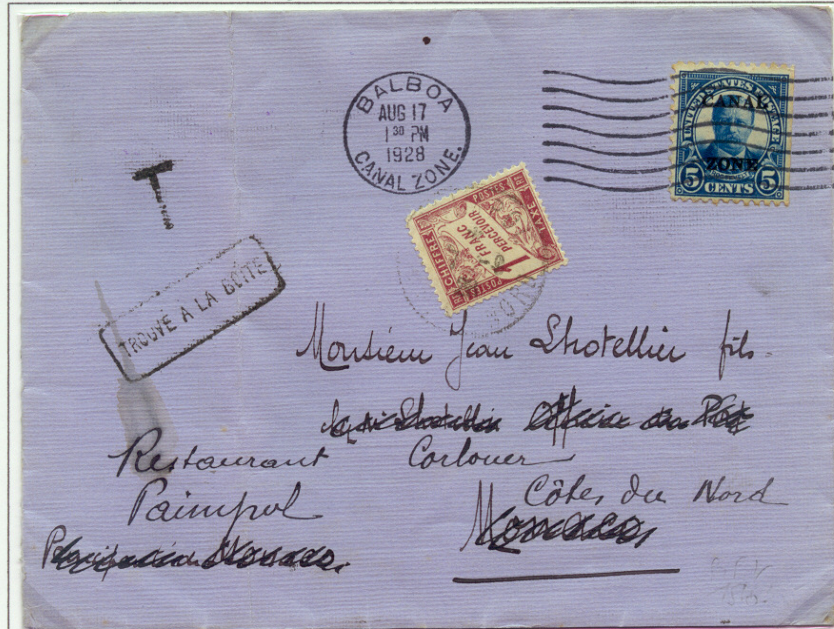 BALBOA
AUG 17
1 30 PM
1928
CANAL ZONE.
UNITED STATES POSTAGE
CANAL
ZONE
5 CENTS 5
T
TROUVÉ A LA BOÎTE
CHIFFRE TAXE
POSTES
1
FRANC
PERCEVOIR
POSTES
Monsieur Jean Lhotellier fils.
Restaurant Corlouer
Paimpol Côtes du Nord
Monaco